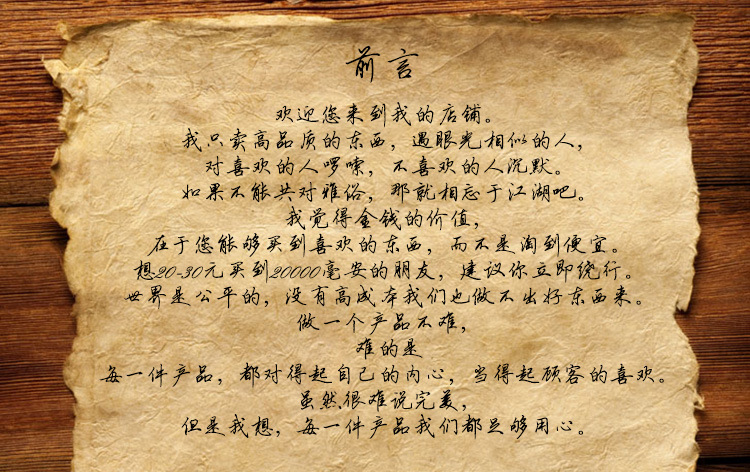 前言
欢迎您来到我的店铺。
我只卖高品质的东西，遇眼光相似的人，
对喜欢的人啰嗦，不喜欢的人沉默。
如果不能共对雅俗，那就相忘于江湖吧。
我觉得金钱的价值，
在于您能够买到喜欢的东西，而不是淘到便宜。
想20-30元买到20000毫安的朋友，建议你立即绕行。
世界是公平的，没有高成本我们也做不出好东西来。
做一个产品不难，
难的是
每一件产品，都对得起自己的内心，当得起顾客的喜欢。
虽然很难说完美，
但是我想，每一件产品我们都足够用心。